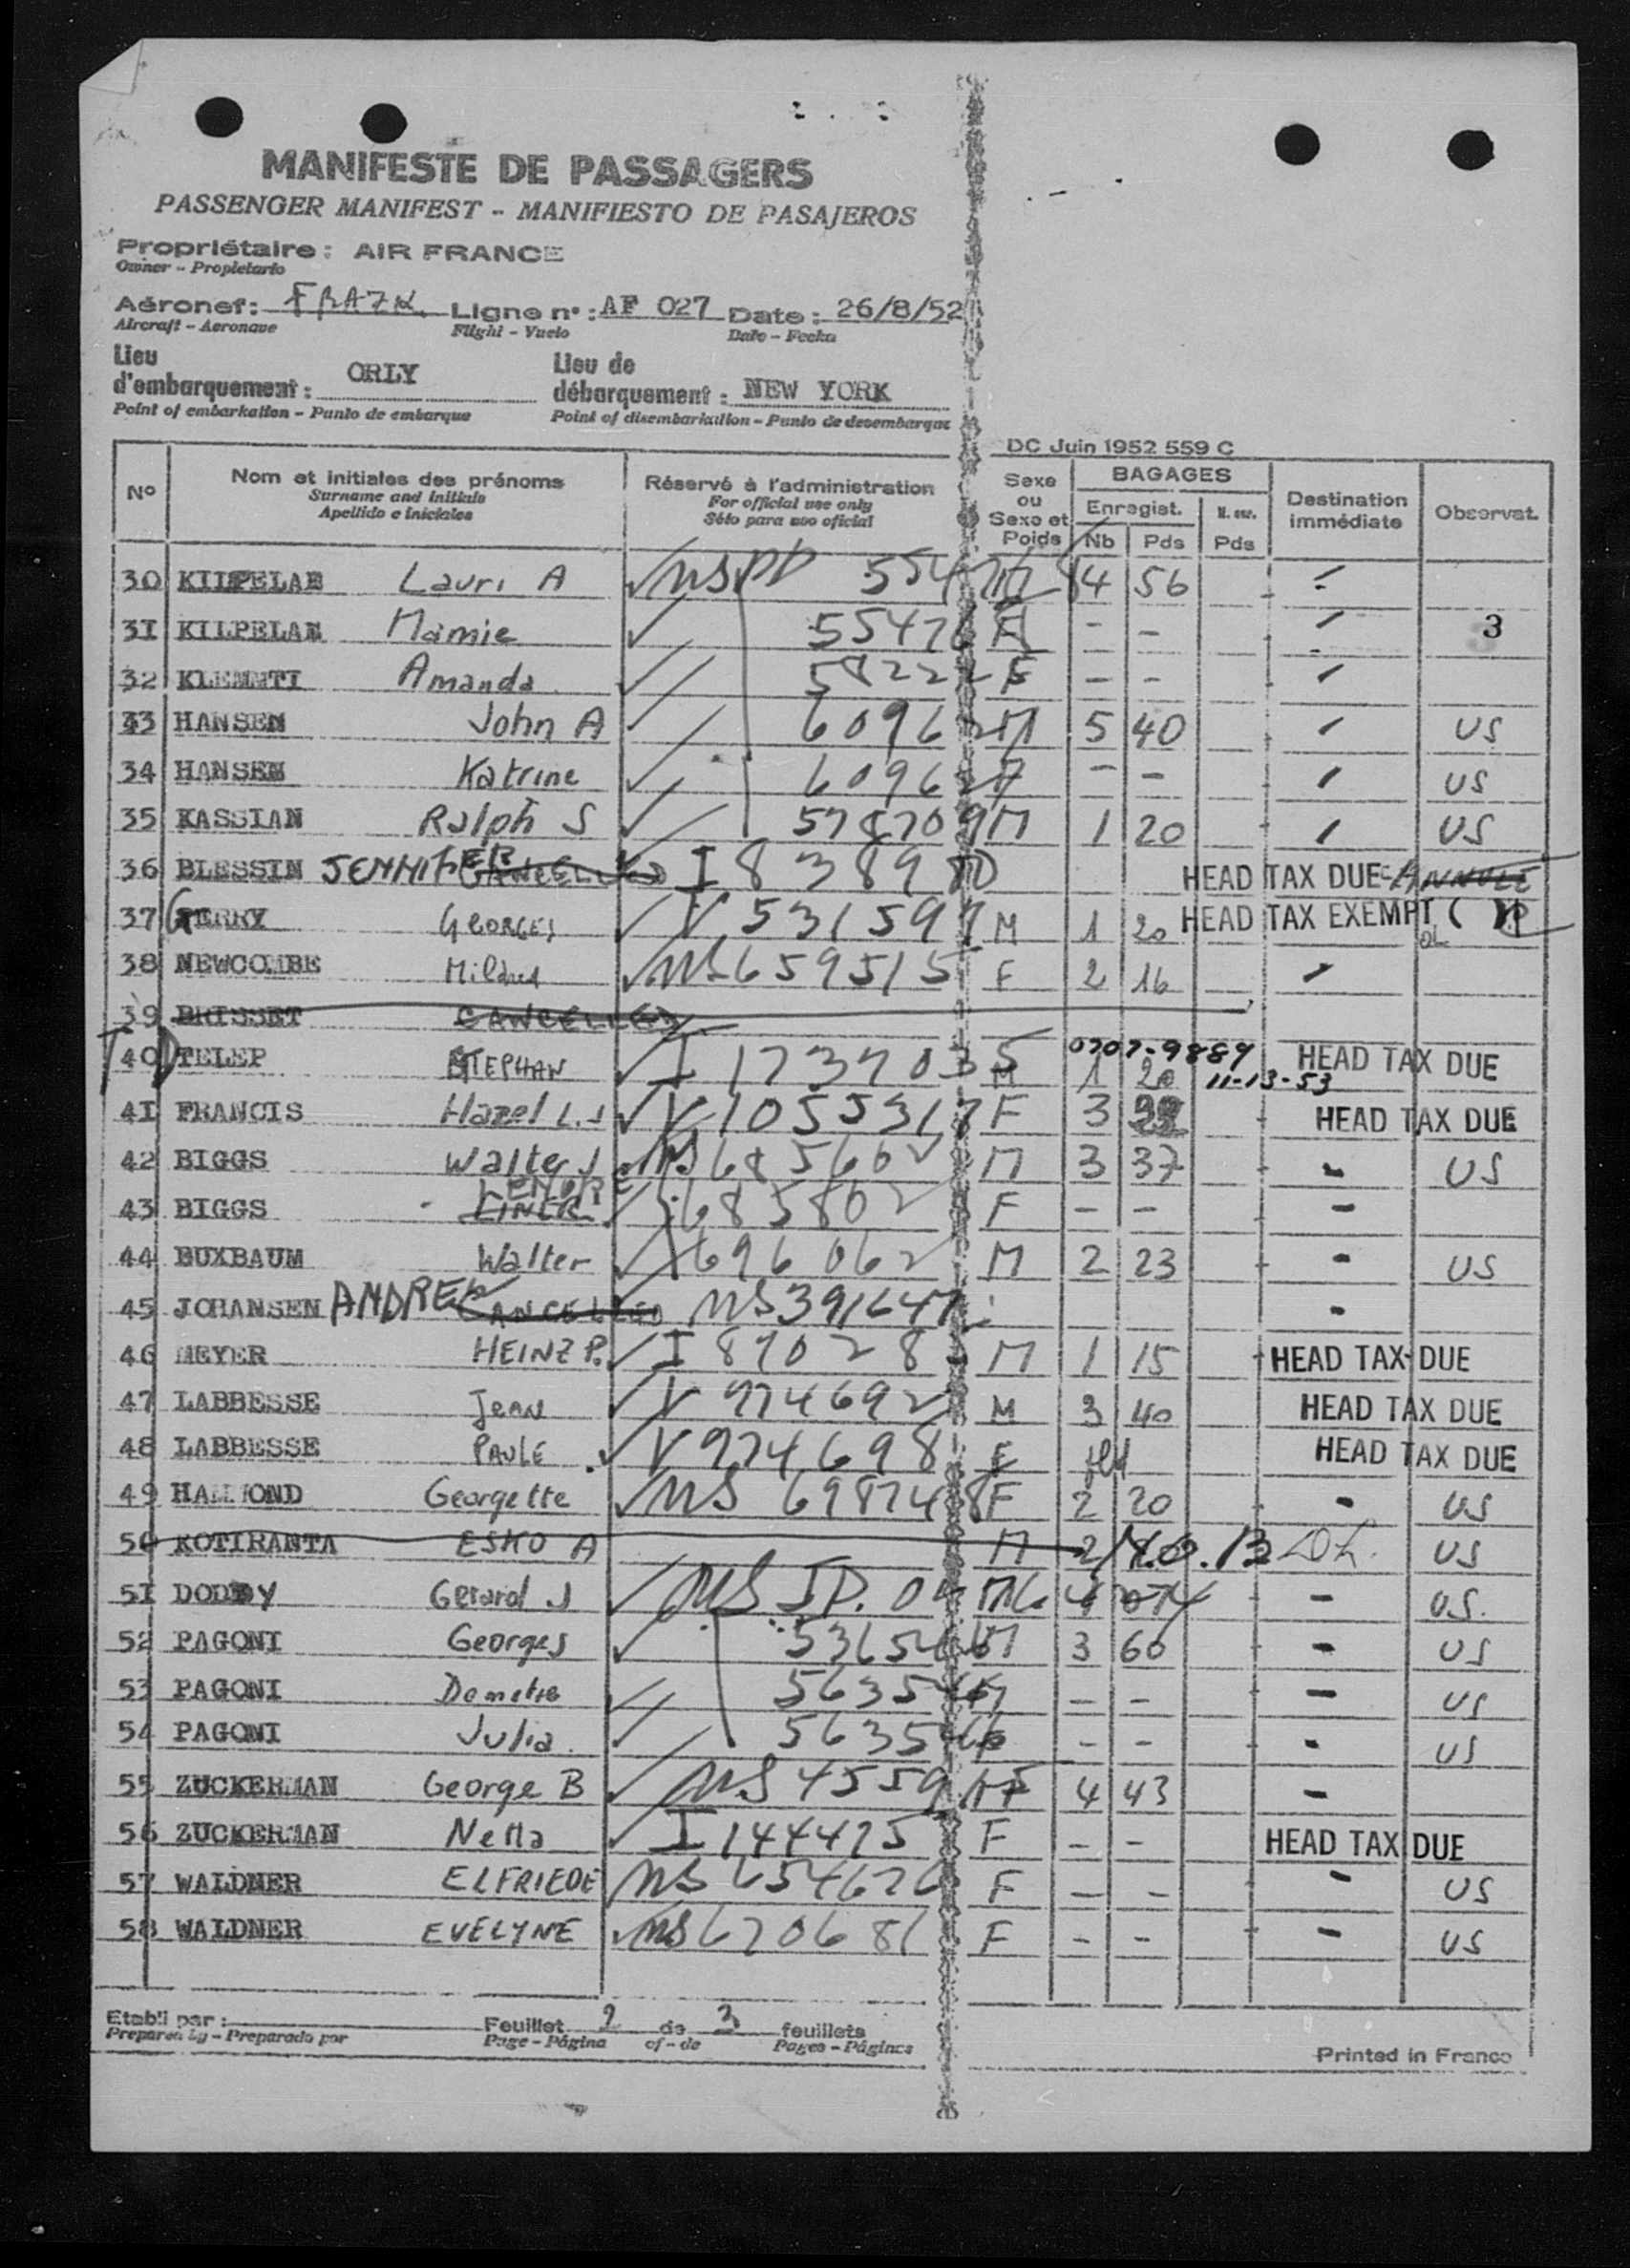 MANIFESTE DE PASSAGERS
PASSENGER MANIFEST - MANIFIESTO DE PASAJEROS
Propriétaire : AIR FRANCE
Owner - Propietario
Aéronef : FBAZK Ligne n° : AF 027 Date : 26/8/52
Aircraft - Aeronave Flight - Vuelo Date - Fecha
Lieu d'embarquement : ORLY Lieu de débarquement : NEW YORK
Point of embarkation - Punto de embarque Point of disembarkation - Punto de desembarque
DC Juin 1952 559 C
N° Nom et initiales des prénoms Réservé à l'administration Sexe ou Sexe et Poids BAGAGES Destination immédiate Observat.
Surname and initials For official use only Enregist. N. enr.
Apellido e iniciales Sólo para uso oficial Nb Pds Pds
30 KILPELAE Lauri A USPP 4 56
31 KILPELAE Mamie F - - 3
32 KLEMMTI Amanda 58222 F - -
33 HANSEN John A M 5 40 US
34 HANSEN Katrine - - US
35 KASSIAN Ralph S M 1 20 US
36 BLESSIN JENNIFER CANCELLED I 838980 HEAD TAX DUE ANNULE
37 GERRY GEORGES V M 1 20 HEAD TAX EXEMPT
38 NEWCOMBE US 659515 F 2 16
39 BRISSET CANCELLED
40 TELEP STEPHAN M 1 20 0707-9889 11-13-53 HEAD TAX DUE
41 FRANCIS Hazel L.J V F 3 HEAD TAX DUE
42 BIGGS Walter J M 3 37 - US
43 BIGGS LENORE F - - -
44 BUXBAUM Walter 696062 M 2 23 - US
45 JOHANSEN ANDREW CANCELLED -
46 MEYER HEINZ P. M 1 15 HEAD TAX DUE
47 LABBESSE Jean V 974692 M 3 40 HEAD TAX DUE
48 LABBESSE PAULE V 974698 F HEAD TAX DUE
49 HAMMOND Georgette US F 2 20 - US
50 KOTIRANTA ESKO A M 2 US
51 DODDY Gerard J - US.
52 PAGONI Georges M 3 60 - US
53 PAGONI - - - US
54 PAGONI Julia - - - US
55 ZUCKERMAN George B 4 43 -
56 ZUCKERMAN Netta F - - HEAD TAX DUE
57 WALDNER ELFRIEDE F - - - US
58 WALDNER EVELYNE F - - - US
Etabli par : Feuillet 2 de 3 feuillets
Prepared by - Preparado por Page - Página of - de Pages - Páginas
Printed in France